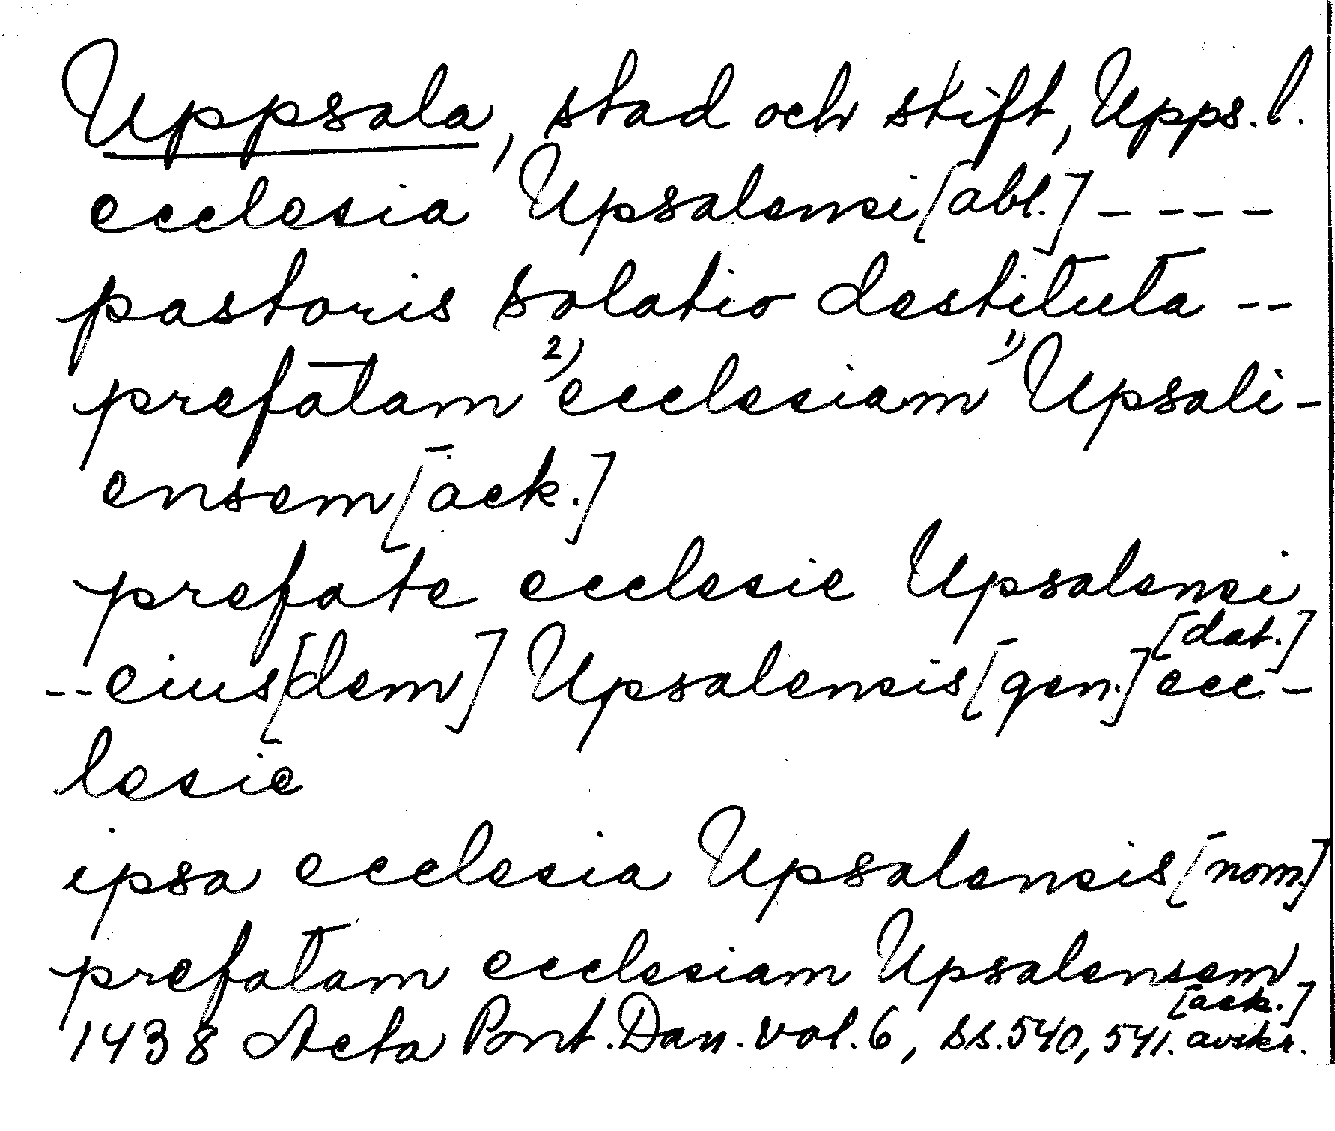 Uppsala, stad och stift, Upps. l.
ecclesia Upsalensi [abl.] - - - -
pastoris solatio destituta - -
prefatam 2) ecclesiam 1) Upsali-
ensem [ack.]
prefate ecclesie Upsalensi
[dat.]
- - eius[dem] Upsalensis [gen.] ecc-
lesie
ipsa ecclesia Upsalensis [nom.]
prefatam ecclesiam Upsalensem
[ack.]
1438 Acta Pont. Dan. vol. 6, ss. 540, 541. avskr.